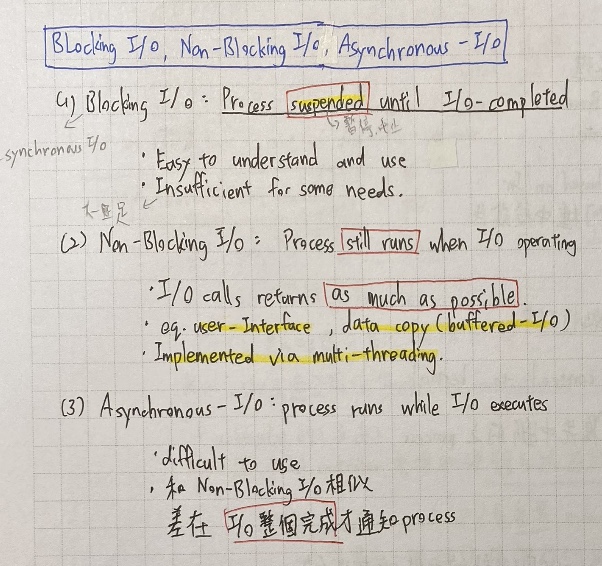 Blocking I/O, Non-Blocking I/O, Asynchronous-I/O
(1) Blocking I/O: Process suspended until I/O-completed
暫停,中止
synchronous I/O
· Easy to understand and use
· Insufficient for some needs.
不足
(2) Non-Blocking I/O: Process still runs when I/O operating
· I/O calls returns as much as possible.
· eg. user-Interface, data copy (buffered-I/O)
· Implemented via multi-threading.
(3) Asynchronous-I/O: process runs while I/O executes
· difficult to use
· 和 Non-Blocking I/O 相似
差在 I/O 整個完成才通知 process